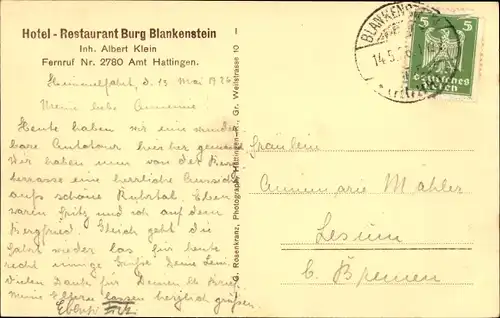 Hotel - Restaurant Burg Blankenstein
Inh. Albert Klein
Fernruf Nr. 2780 Amt Hattingen.
Himmelfahrt, d. 13 Mai 1926
Meine liebe Annemie
Heute haben wir eine wunder
bare Autotour hierher gemacht
Wir haben nun von der
terrasse eine herrliche Aussicht
aufs schöne Ruhrtal. Eben
waren Spitz und ich auf dem
Bergfried. Gleich geht die
Fahrt wieder los für heute
recht innige Grüße Deine Leni.
Vielen Dank für Deinen lb. Brief.
Meine Eltern lassen herzlich grüßen
Ebenso
G. Rosenkranz, Photograph, Hattingen-R., Gr. Weilstrasse 10
BLANKENSTEIN
14.5.26
5 5
Deutsches Reich
Fräulein
Annemarie Mähler
Lesum
b. Bremen